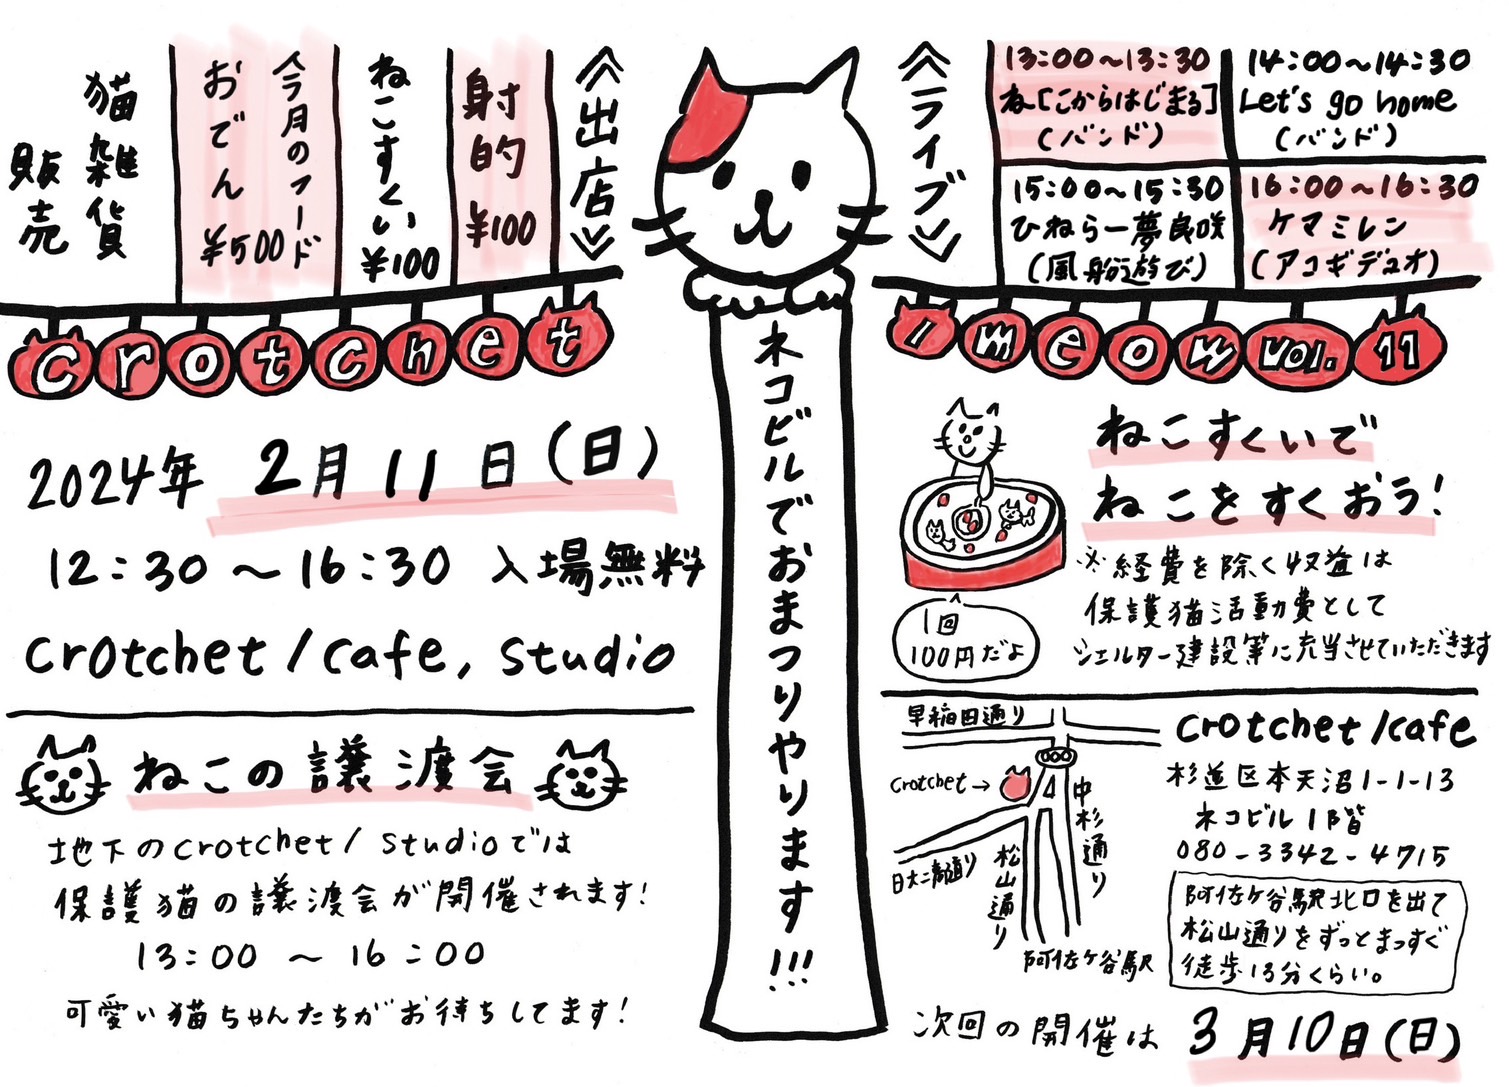 《出店》
射的
¥100
ねこすくい
¥100
今月のフード
おでん
¥500
猫雑貨
販売
《ライブ》
13:00～13:30
ね[こからはじまる]
(バンド)
14:00～14:30
Let's go home
(バンド)
15:00～15:30
ひねらー夢良咲
(風船遊び)
16:00～16:30
ケマミレン
(アコギデュオ)
crotchet
/meow vol. 11
ネコビルでおまつりやります!!!
2024年 2月11日(日)
12:30～16:30 入場無料
crotchet/cafe, studio
ねこの譲渡会
地下のcrotchet/studioでは
保護猫の譲渡会が開催されます!
13:00～16:00
可愛い猫ちゃんたちがお待ちしてます!
ねこすくいで
ねこをすくおう!
※経費を除く収益は
保護猫活動費として
シェルター建設等に充当させていただきます
1回
100円だよ
早稲田通り
crotchet→
中杉通り
日大二高通り
松山通り
阿佐ケ谷駅
crotchet/cafe
杉並区本天沼1-1-13
ネコビル1階
080-3342-4715
阿佐ケ谷駅北口を出て
松山通りをずっとまっすぐ
徒歩13分くらい。
次回の開催は 3月10日(日)